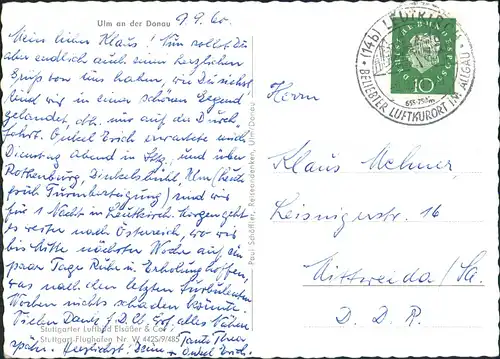 Ulm an der Donau
9.9.60.
Mein lieber Klaus! Nun sollst Du
aber endlich auch einen herzlichen
Gruß von uns haben, wie Du siehst,
sind wir in einer schönen Gegend
gelandet, abr. nur auf der Durch-
fahrt. Onkel Erich erwartete mich
Dienstag Abend in Stg. und über
Rothenburg, Dinkelsbühl, Ulm (heute
früh Turmbesteigung) sind wir
für 1 Nacht in Leutkirch. Morgen geht
es weiter nach Österreich, wo wir
bis Mitte nächster Woche auf ein
paar Tage Ruhe u. Erholung hoffen,
was nach den letzten turbulenten
Wochen nichts schaden könnte.
Vielen Dank f. D. Brf., alles Nähere
spät. Herzlichst Deine Tante Thea
u. Onkel Erich.
Stuttgarter Luftbild Elsäßer & Co.
Stuttgart-Flughafen Nr. W 4425/9/485
Paul Schäffler, Reiseandenken, Ulm-Donau
(14b) LEUTKIRCH
BELIEBTER LUFTKURORT IM ALLGÄU
655-750m
DEUTSCHE BUNDESPOST
10
Herrn
Klaus
Leisnigerstr. 16
Mittweida/Sa.
D. D. R.